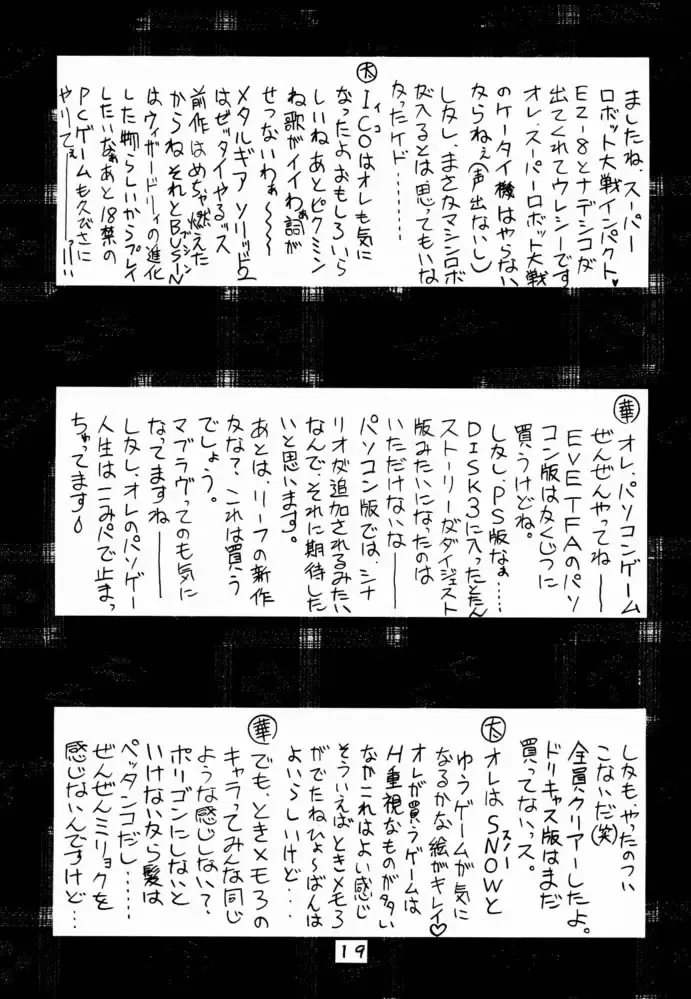 ましたね、スーパー
ロボット大戦インパクト♥
EZ-8とナデシコが
出てくれてウレシーです
オレ、スーパーロボット大戦
のケータイ機はやらない
ならねぇ(声出ないし)
しかし、まさかマシンロボ
が入るとは思ってもいな
なったケド……
㊛
ICOはオレも気に
イコ
なったよおもしろいら
しいねあとピクミン
ね歌がイイわぁ詞が
せつないわぁ〜〜〜
メタルギアソリッド2
はぜッタイやるッス
前作はめちゃ燃えた
からねそれとBUSIN
ブシン
はウィザードリィの進化
した物らしいからプレイ
したいなぁあと18禁の
PCゲームも久びさに
やりてぇ――っ!!
華
オレ、パソコンゲーム
ぜんぜんやってね――
EVE TFAのパソ
コン版はかくじつに
買うけどね。
しかし、PS版なぁ……
DISK3に入ったとたん
ストーリーがダイジェスト
版みたいになったのは
いただけないな――
パソコン版では、シナ
リオが追加されるみたい
なんで、それに期待した
いと思います。
あとは、リーフの新作
かな?これは買う
でしょう。
マブラヴってのも気に
なってますね――
しかし、オレのパソゲー
人生はこみパで止まっ
ちゃってます
しかも、やったのつい
こないだ(笑)
全員クリアーしたよ。
ドリキャス版はまだ
買ってないっス。
太
オレはSNOWと
スノー
ゆうゲームが気に
なるかな絵がキレイ♡
オレが買うゲームは
H重視なものが多い
なかこれはよい感じ
そういえばときメモ3
がでたねひょ〜ばんは
よいらしいけど…
華
でも、ときメモ3の
キャラってみんな同じ
ような感じしない?
ポリゴンにしないと
いけないから髪は
ペッタンコだし……
ぜんぜんミリョクを
感じないんですけど…
19